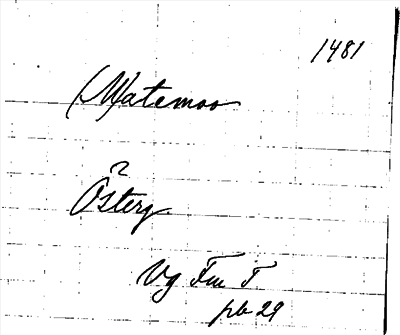 1481
(Watemoo
?
Österg.
Vg Fm T
pb 29